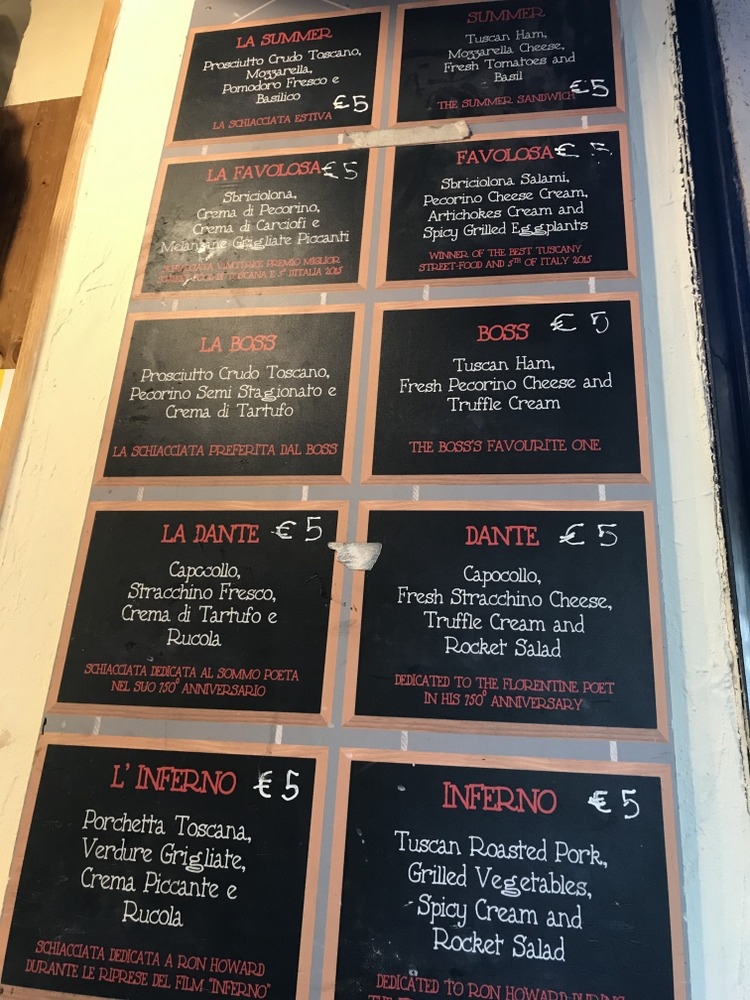 LA SUMMER
Prosciutto Crudo Toscano,
Mozzarella,
Pomodoro Fresco e
Basilico
€5
LA SCHIACCIATA ESTIVA
SUMMER
Tuscan Ham,
Mozzarella Cheese,
Fresh Tomatoes and
Basil
€5
THE SUMMER SANDWICH
LA FAVOLOSA €5
Sbriciolona,
Crema di Pecorino,
Crema di Carciofi e
Melanzane Grigliate Piccanti
SCHIACCIATA VINCITRICE PREMIO MIGLIOR
STREET-FOOD DI TOSCANA E 5° D'ITALIA 2015
FAVOLOSA € 5
Sbriciolona Salami,
Pecorino Cheese Cream,
Artichokes Cream and
Spicy Grilled Eggplants
WINNER OF THE BEST TUSCANY
STREET-FOOD AND 5TH OF ITALY 2015
LA BOSS
Prosciutto Crudo Toscano,
Pecorino Semi Stagionato e
Crema di Tartufo
LA SCHIACCIATA PREFERITA DAL BOSS
BOSS € 5
Tuscan Ham,
Fresh Pecorino Cheese and
Truffle Cream
THE BOSS'S FAVOURITE ONE
LA DANTE € 5
Capocollo,
Stracchino Fresco,
Crema di Tartufo e
Rucola
SCHIACCIATA DEDICATA AL SOMMO POETA
NEL SUO 750° ANNIVERSARIO
DANTE € 5
Capocollo,
Fresh Stracchino Cheese,
Truffle Cream and
Rocket Salad
DEDICATED TO THE FLORENTINE POET
IN HIS 750° ANNIVERSARY
L' INFERNO € 5
Porchetta Toscana,
Verdure Grigliate,
Crema Piccante e
Rucola
SCHIACCIATA DEDICATA A RON HOWARD
DURANTE LE RIPRESE DEL FILM "INFERNO"
INFERNO €5
Tuscan Roasted Pork,
Grilled Vegetables,
Spicy Cream and
Rocket Salad
DEDICATED TO RON HOWARD DURING